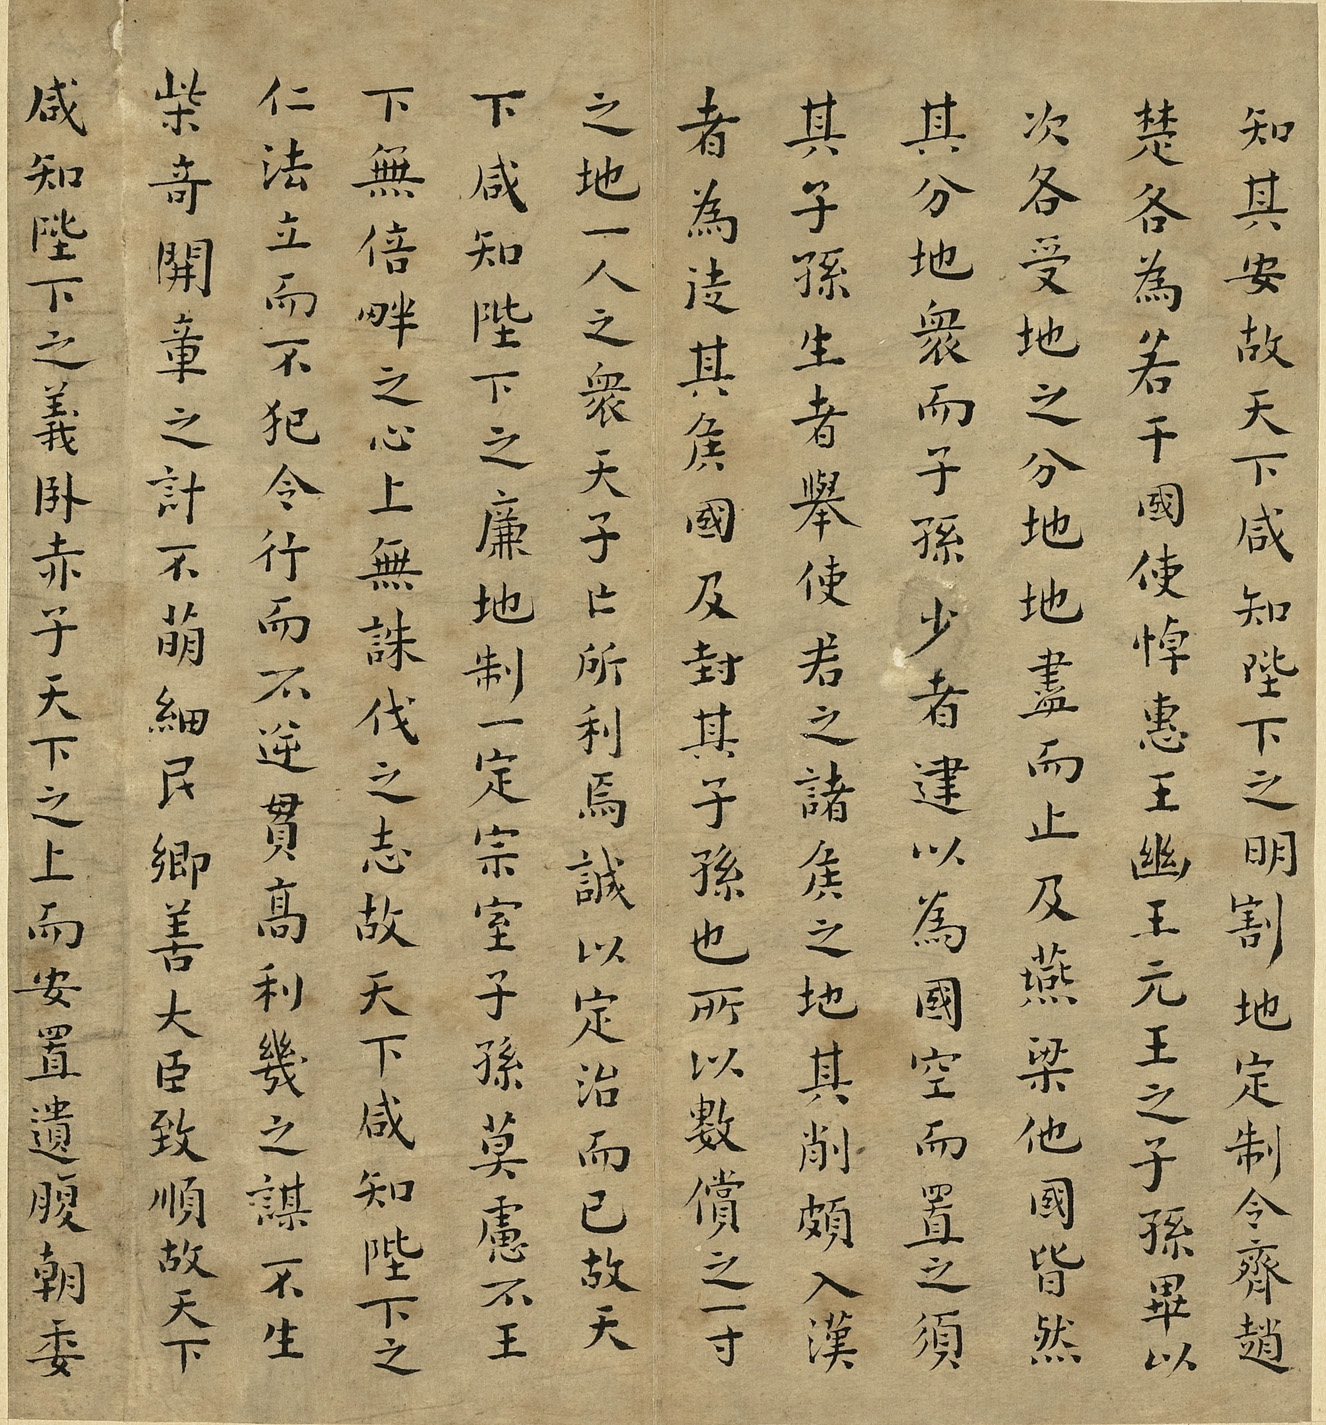 知其安故天下咸知陛下之明割地定制令齊趙
楚各為若干國使悼惠王幽王元王之子孫畢以
次各受地之分地地盡而止及燕梁他國皆然
其分地衆而子孫少者建以為國空而置之須
其子孫生者舉使君之諸侯之地其削頗入漢
者為徙其侯國及封其子孫也所以數償之一寸
之地一人之衆天子亡所利焉誠以定治而已故天
下咸知陛下之廉地制一定宗室子孫莫慮不王
下無倍畔之心上無誅伐之志故天下咸知陛下之
仁法立而不犯令行而不逆貫高利幾之謀不生
柴奇開章之計不萌細民鄉善大臣致順故天下
咸知陛下之義卧赤子天下之上而安置遺腹朝委